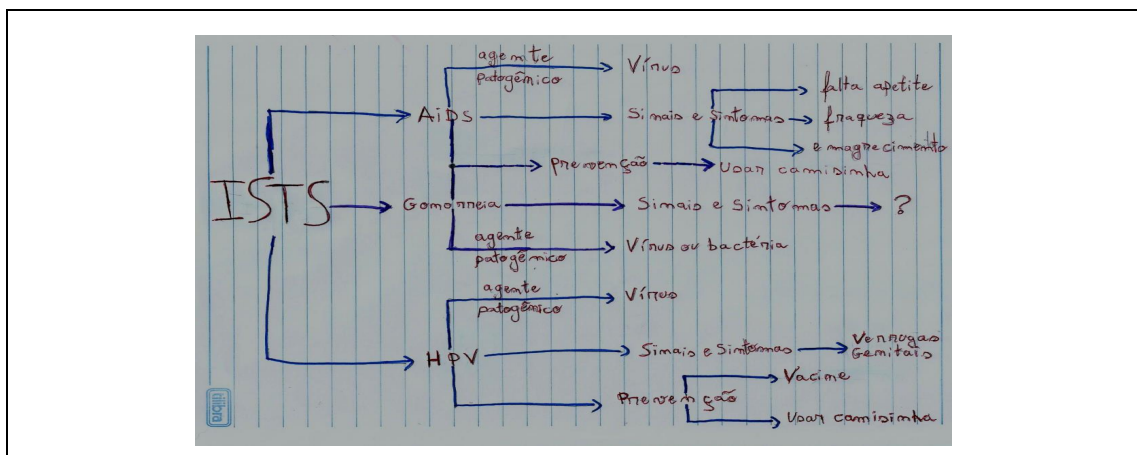 agente
patogênico
Vírus
falta apetite
AiDS
Sinais e Sintomas
fraqueza
emagrecimento
Prevenção
Usar camisinha
ISTS
Gonorreia
Sinais e Sintomas
?
agente
patogênico
Vírus ou bactéria
agente
patogênico
Vírus
HPV
Sinais e Sintomas
Verrugas
Genitais
Prevenção
Vacine
Usar camisinha
tilibra